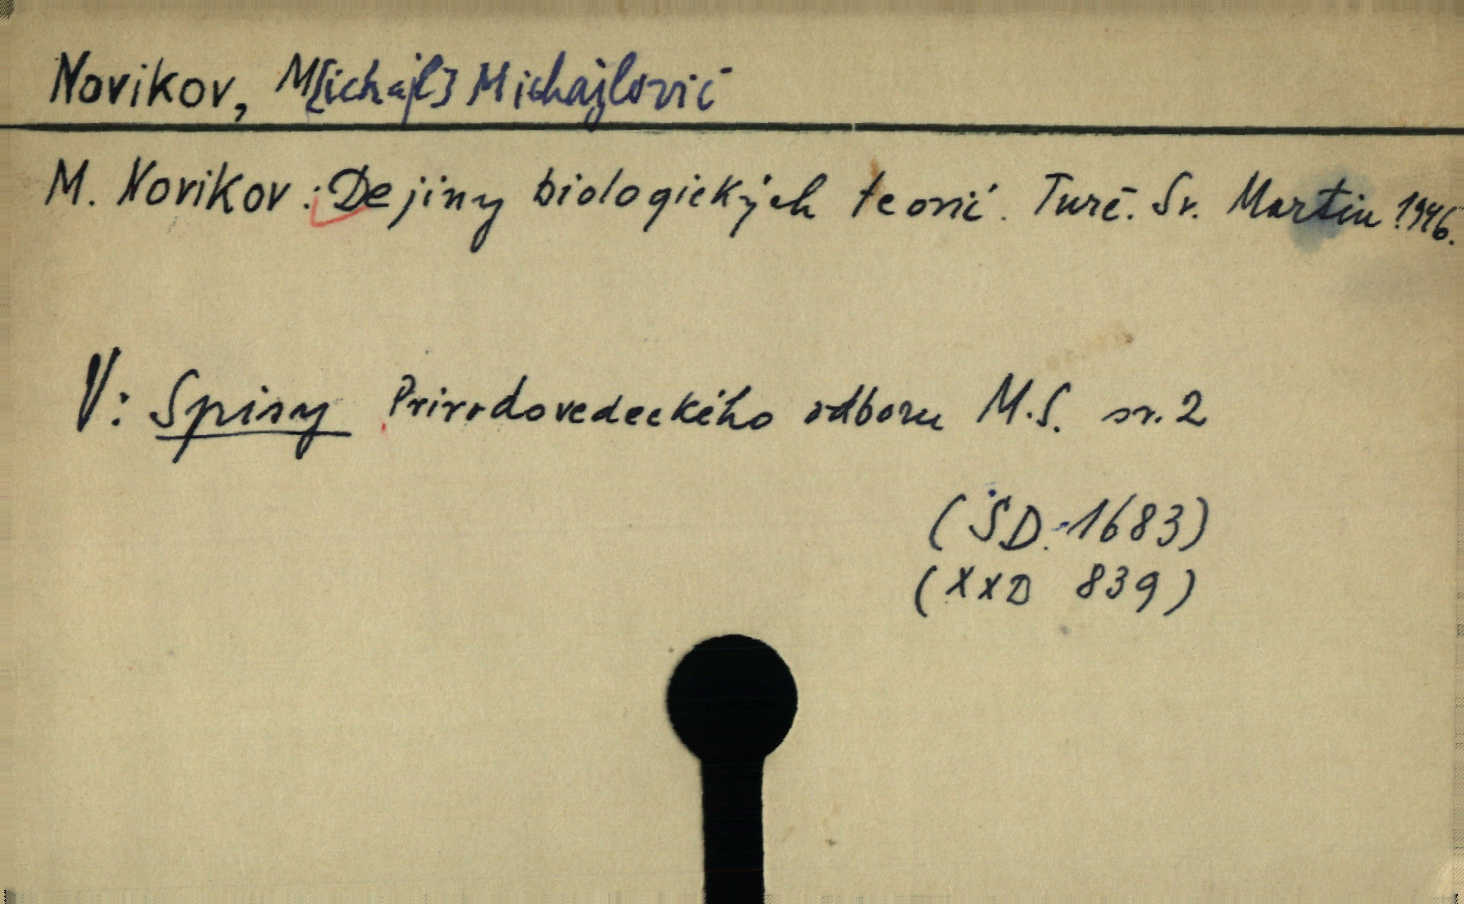 Novikov, M[ichajl] Michajlovič
M. Novikov: Dejiny biologických teorií. Turč. Sv. Martin 1946.
V: Spisy Prírodovedeckého odboru M.S. sv. 2
(ŠD.-1683)
(XXD 839)